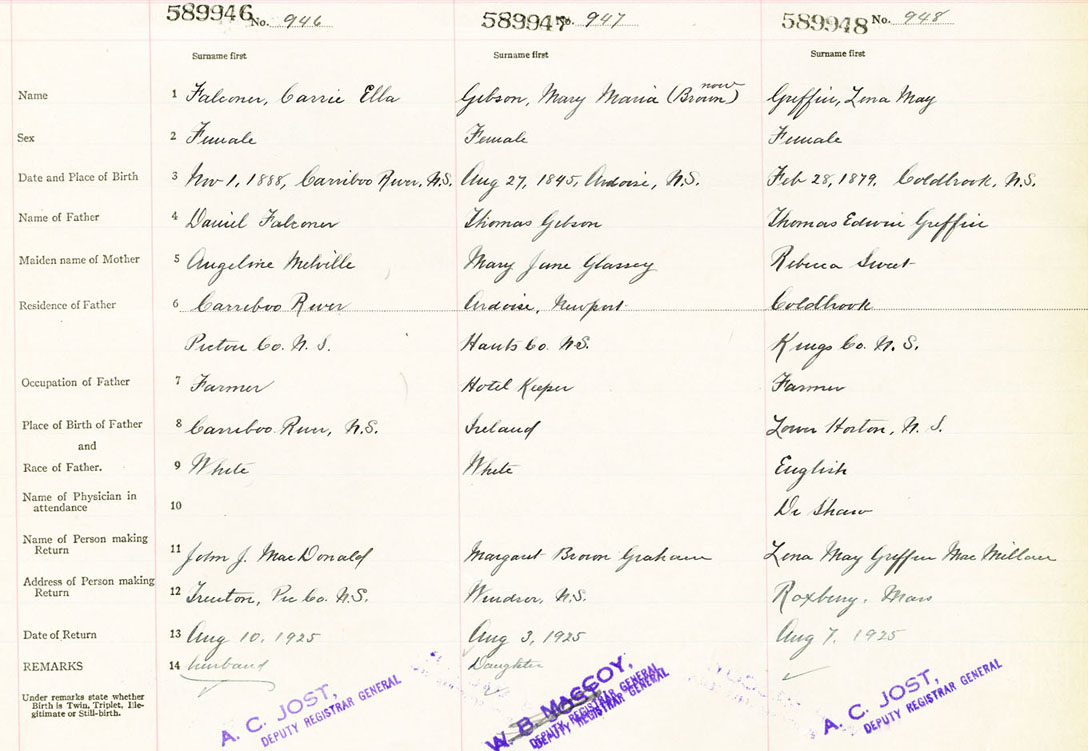 589946 No. 946 589947 No. 947 589948 No. 948
Surname first Surname first Surname first
Name 1 Falconer, Carrie Ella Gibson, Mary Maria (now Brown) Griffin, Lena May
Sex 2 Female Female Female
Date and Place of Birth 3 Nov 1, 1888, Carriboo River, N.S. Aug 27, 1845, Ardoise, N.S. Feb 28, 1879, Coldbrook, N.S.
Name of Father 4 Daniel Falconer Thomas Gibson Thomas Edwin Griffin
Maiden name of Mother 5 Angeline Melville Mary Jane Glassey Rebecca Sweet
Residence of Father 6 Carriboo River Ardoise, Newport Coldbrook
Pictou Co. N. S. Hants Co. N.S. Kings Co. N. S.
Occupation of Father 7 Farmer Hotel Keeper Farmer
Place of Birth of Father 8 Carriboo River, N.S. Ireland Lower Horton, N. S.
and
Race of Father. 9 White White English
Name of Physician in
attendance 10 Dr Shaw
Name of Person making
Return 11 John J. MacDonald Margaret Brown Graham Lena May Griffin MacMillan
Address of Person making
Return 12 Trenton, Pic Co. N.S. Windsor, N.S. Roxbury, Mass
Date of Return 13 Aug 10, 1925 Aug 3, 1925 Aug 7, 1925
REMARKS 14 husband Daughter
Under remarks state whether
Birth is Twin, Triplet, Ille-
gitimate or Still-birth.
A. C. JOST, W. B. MacCOY, A. C. JOST,
DEPUTY REGISTRAR GENERAL DEPUTY REGISTRAR GENERAL DEPUTY REGISTRAR GENERAL